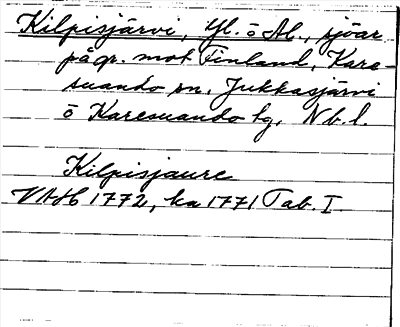 Kilpisjärvi, Yl. o Al., sjöar
på gr. mot Finland, Kare-
suando sn, Jukkasjärvi
o Karesuando tg, Nb. l.
Kilpisjaure
VAH 1772, ka 1771 Tab. I